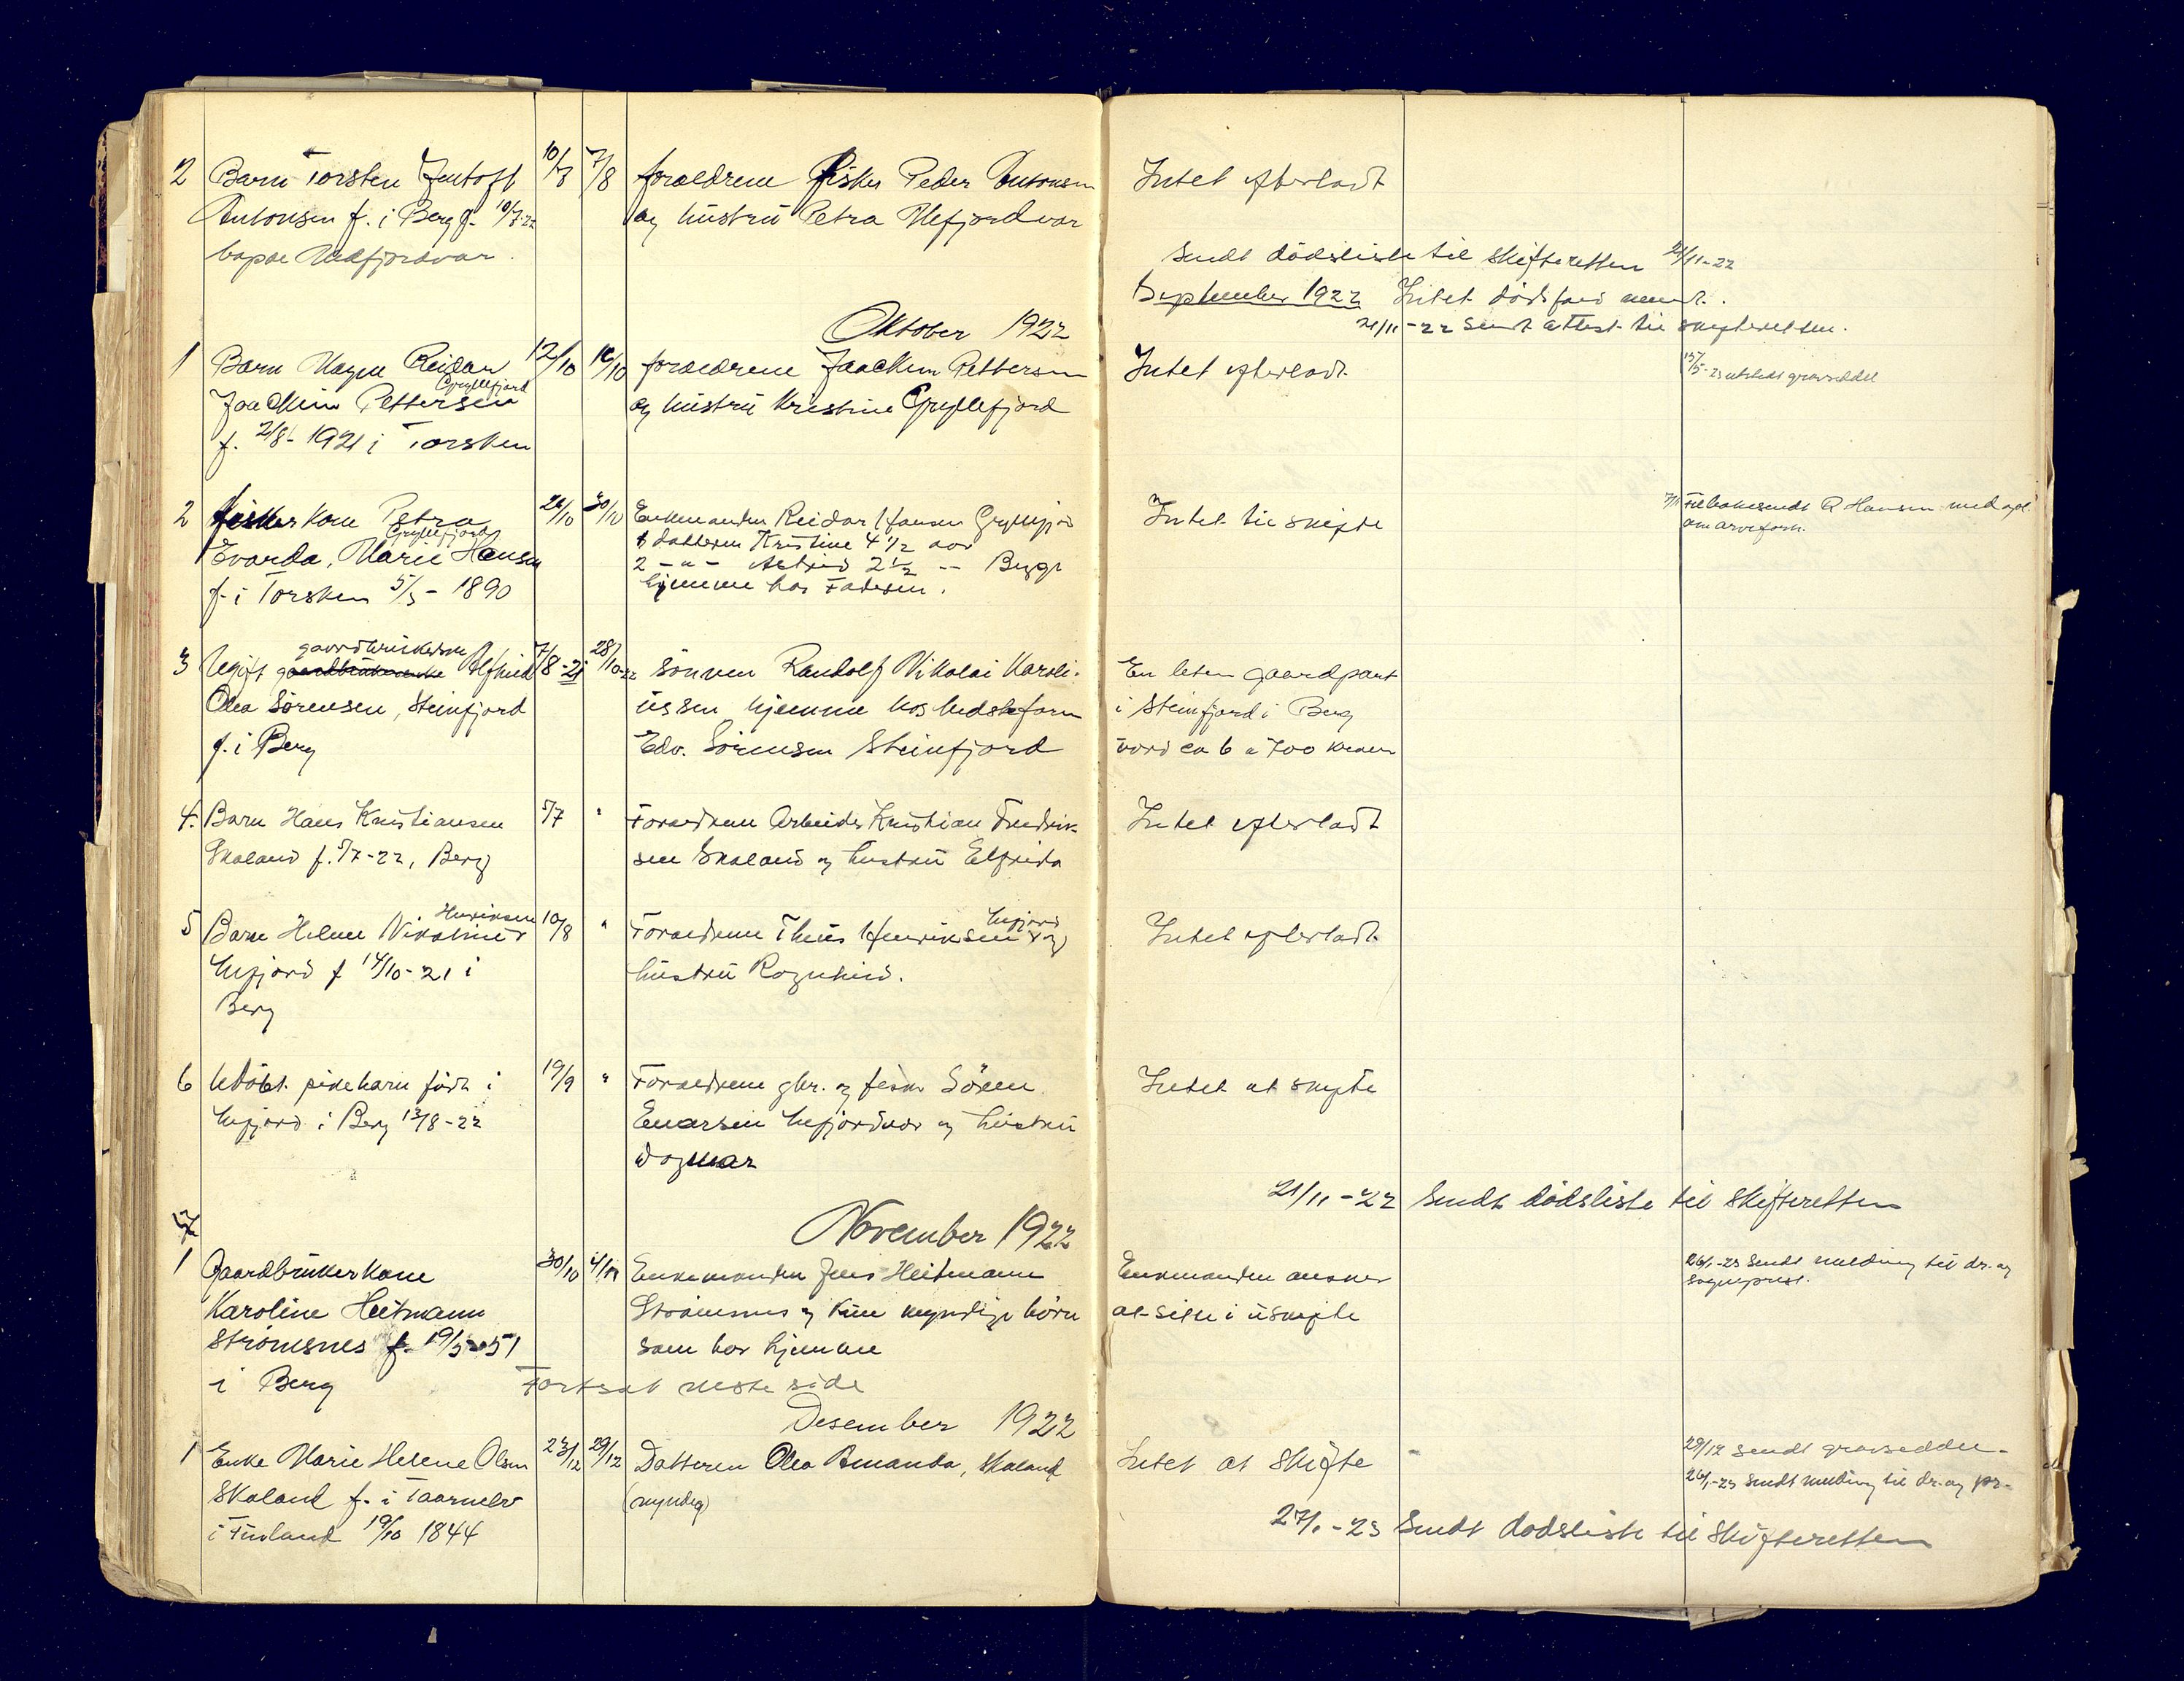 2 Barn Torsten Jentoft 10/7 7/8 forældrene fisker Peder Antonsen Intet efterladt
Antonsen f. i Berg f. 10/7-22 og hustru Petra Mefjordvær
bopæl Mefjordvær.
Sendt dödsliste til skifteretten 21/11-22
September 1922 Intet dödsfald meldt.
21/11-22 sendt attest til skifteretten.
Oktober 1922
1 Barn Magne Reidar 12/10 16/10 forældrene Joachim Pettersen Intet efterladt 15/5-23 utstedt gravseddel
Gryllefjord
Joachim Pettersen og hustru Kristine Gryllefjord
f. 2/8-1921 i Torsken
2 fiskerkone Petra 26/10 30/10 Enkemanden Reidar Hansen Gryllefjord Intet til skifte 7/11 Tilbakesendt R Hansen med opl.
Gryllefjord om arveforh.
Evarda, Marie Hansen 1 datteren Kristine 4 1/2 aar
f. i Torsken 5/5-1890 2 -"- Astrid 2 1/2 -- Begge
hjemme hos Faderen.
3 Ugift gaardbrukerske Alfhild 7/8-21 28/10-22 sönnen Randolf Nikolai Karoli- En liten gaardpart
Olea Sörensen, Steinfjord ussen hjemme hos bedstefaren i Steinfjord i Berg
f. i Berg Edv. Sörensen Steinfjord værd ca 6 a 700 kroner
4. Barn Hans Kristiansen 5/7 " Forældrene Arbeider Kristian Fredrik- Intet efterladt
Skaland f. 5/7-22, Berg sen Skaland og hustru Elfrida
Henriksen
5 Barn Helmer Nikolai 10/8 " Forældrene Theis Henriksen Mefjord og Intet efterladt
Mefjord f 14/10-21 i hustru Ragnhild.
Berg
6 Udöbt pikebarn födt i 19/9 " Forældrene gbr. og fisker Sören Intet at skifte
Mefjord i Berg 13/8-22 Enarsen Mefjordvær og hustru
Dagmar
21/11-22 Sendt dödsliste til Skifteretten
November 1922
1 Gaardbrukerkone 30/10 4/11 Enkemanden Jens Heitmann Enkemanden ønsker 26/1-23 Sendt melding til dr. og
sogneprest.
Karoline Heitmann Strömsnes og kun myndige börn at sitte i uskifte
Strömsnes f. 19/5-51 som bor hjemme
i Berg Fortsat neste side
Desember 1922
1 Enke Marie Helene Olsen 23/12 29/12 Datteren Olea Amanda, Skaland Intet at Skifte 29/12 sendt gravseddel-
Skaland f. i Taarnelv (myndig) 26/1-23 Sendt melding til dr. og pr-
i Finland 19/10 1844 27/1-23 Sendt dödsliste til Skifteretten